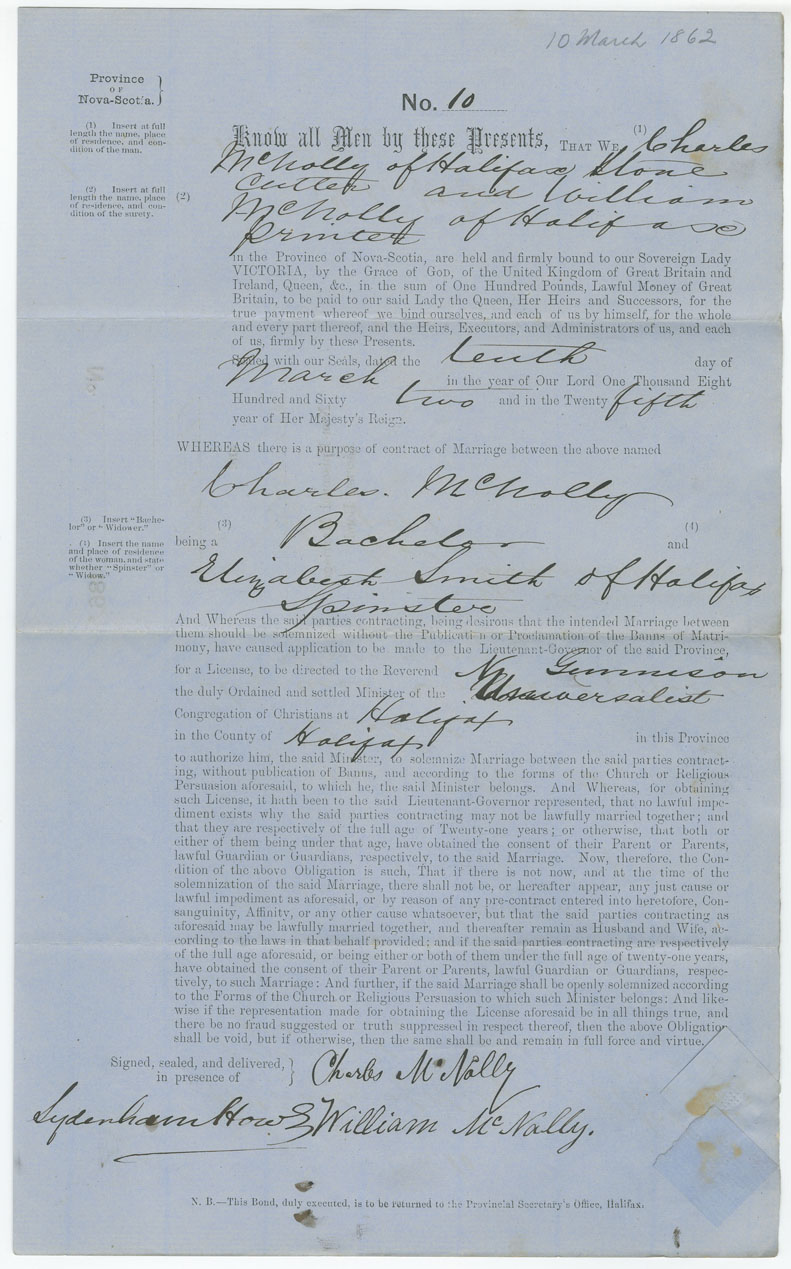 10 March 1862
Province
OF
Nova-Scotia.
No. 10
(1) Insert at full
length the name, place
of residence, and con-
dition of the man.
Know all Men by these Presents, THAT WE (1) Charles
McNolly of Halifax Stone
(2) Insert at full
length the name, place
of residence, and con-
dition of the surety.
(2) Cutter and William
McNolly of Halifax
Printer
in the Province of Nova-Scotia, are held and firmly bound to our Sovereign Lady
VICTORIA, by the Grace of GOD, of the United Kingdom of Great Britain and
Ireland, Queen, &c., in the sum of One Hundred Pounds, Lawful Money of Great
Britain, to be paid to our said Lady the Queen, Her Heirs and Successors, for the
true payment whereof we bind ourselves, and each of us by himself, for the whole
and every part thereof, and the Heirs, Executors, and Administrators of us, and each
of us, firmly by these Presents.
Sealed with our Seals, dated the tenth day of
March in the year of Our Lord One Thousand Eight
Hundred and Sixty two and in the Twenty fifth
year of Her Majesty's Reign.
WHEREAS there is a purpose of contract of Marriage between the above named
Charles. McNolly
(3) Insert "Bache-
lor" or "Widower."
(4) Insert the name
and place of residence
of the woman, and state
whether "Spinster" or
"Widow."
being a (3) Bachelor and (4)
Elizabeth Smith of Halifax
Spinster
And Whereas the said parties contracting, being desirous that the intended Marriage between
them should be solemnized without the Publication or Proclamation of the Banns of Matri-
mony, have caused application to be made to the Lieutenant-Governor of the said Province,
for a License, to be directed to the Reverend N. Gunnison
the duly Ordained and settled Minister of the Universalist
Congregation of Christians at Halifax
in the County of Halifax in this Province
to authorize him, the said Minister, to solemnize Marriage between the said parties contract-
ing, without publication of Banns, and according to the forms of the Church or Religious
Persuasion aforesaid, to which he, the said Minister belongs. And Whereas, for obtaining
such License, it hath been to the said Lieutenant-Governor represented, that no lawful impe-
diment exists why the said parties contracting may not be lawfully married together; and
that they are respectively of the full age of Twenty-one years; or otherwise, that both or
either of them being under that age, have obtained the consent of their Parent or Parents,
lawful Guardian or Guardians, respectively, to the said Marriage. Now, therefore, the Con-
dition of the above Obligation is such, That if there is not now, and at the time of the
solemnization of the said Marriage, there shall not be, or hereafter appear, any just cause or
lawful impediment as aforesaid, or by reason of any pre-contract entered into heretofore, Con-
sanguinity, Affinity, or any other cause whatsoever, but that the said parties contracting as
aforesaid may be lawfully married together, and thereafter remain as Husband and Wife, ac-
cording to the laws in that behalf provided; and if the said parties contracting are respectively
of the full age aforesaid, or being either or both of them under the full age of twenty-one years,
have obtained the consent of their Parent or Parents, lawful Guardian or Guardians, respec-
tively, to such Marriage: And further, if the said Marriage shall be openly solemnized according
to the Forms of the Church or Religious Persuasion to which such Minister belongs: And like-
wise if the representation made for obtaining the License aforesaid be in all things true, and
there be no fraud suggested or truth suppressed in respect thereof, then the above Obligation
shall be void, but if otherwise, then the same shall be and remain in full force and virtue.
Signed, sealed, and delivered,
in presence of
Charles McNolly
Sydenham Howe William McNally.
N. B.—This Bond, duly executed, is to be returned to the Provincial Secretary's Office, Halifax.